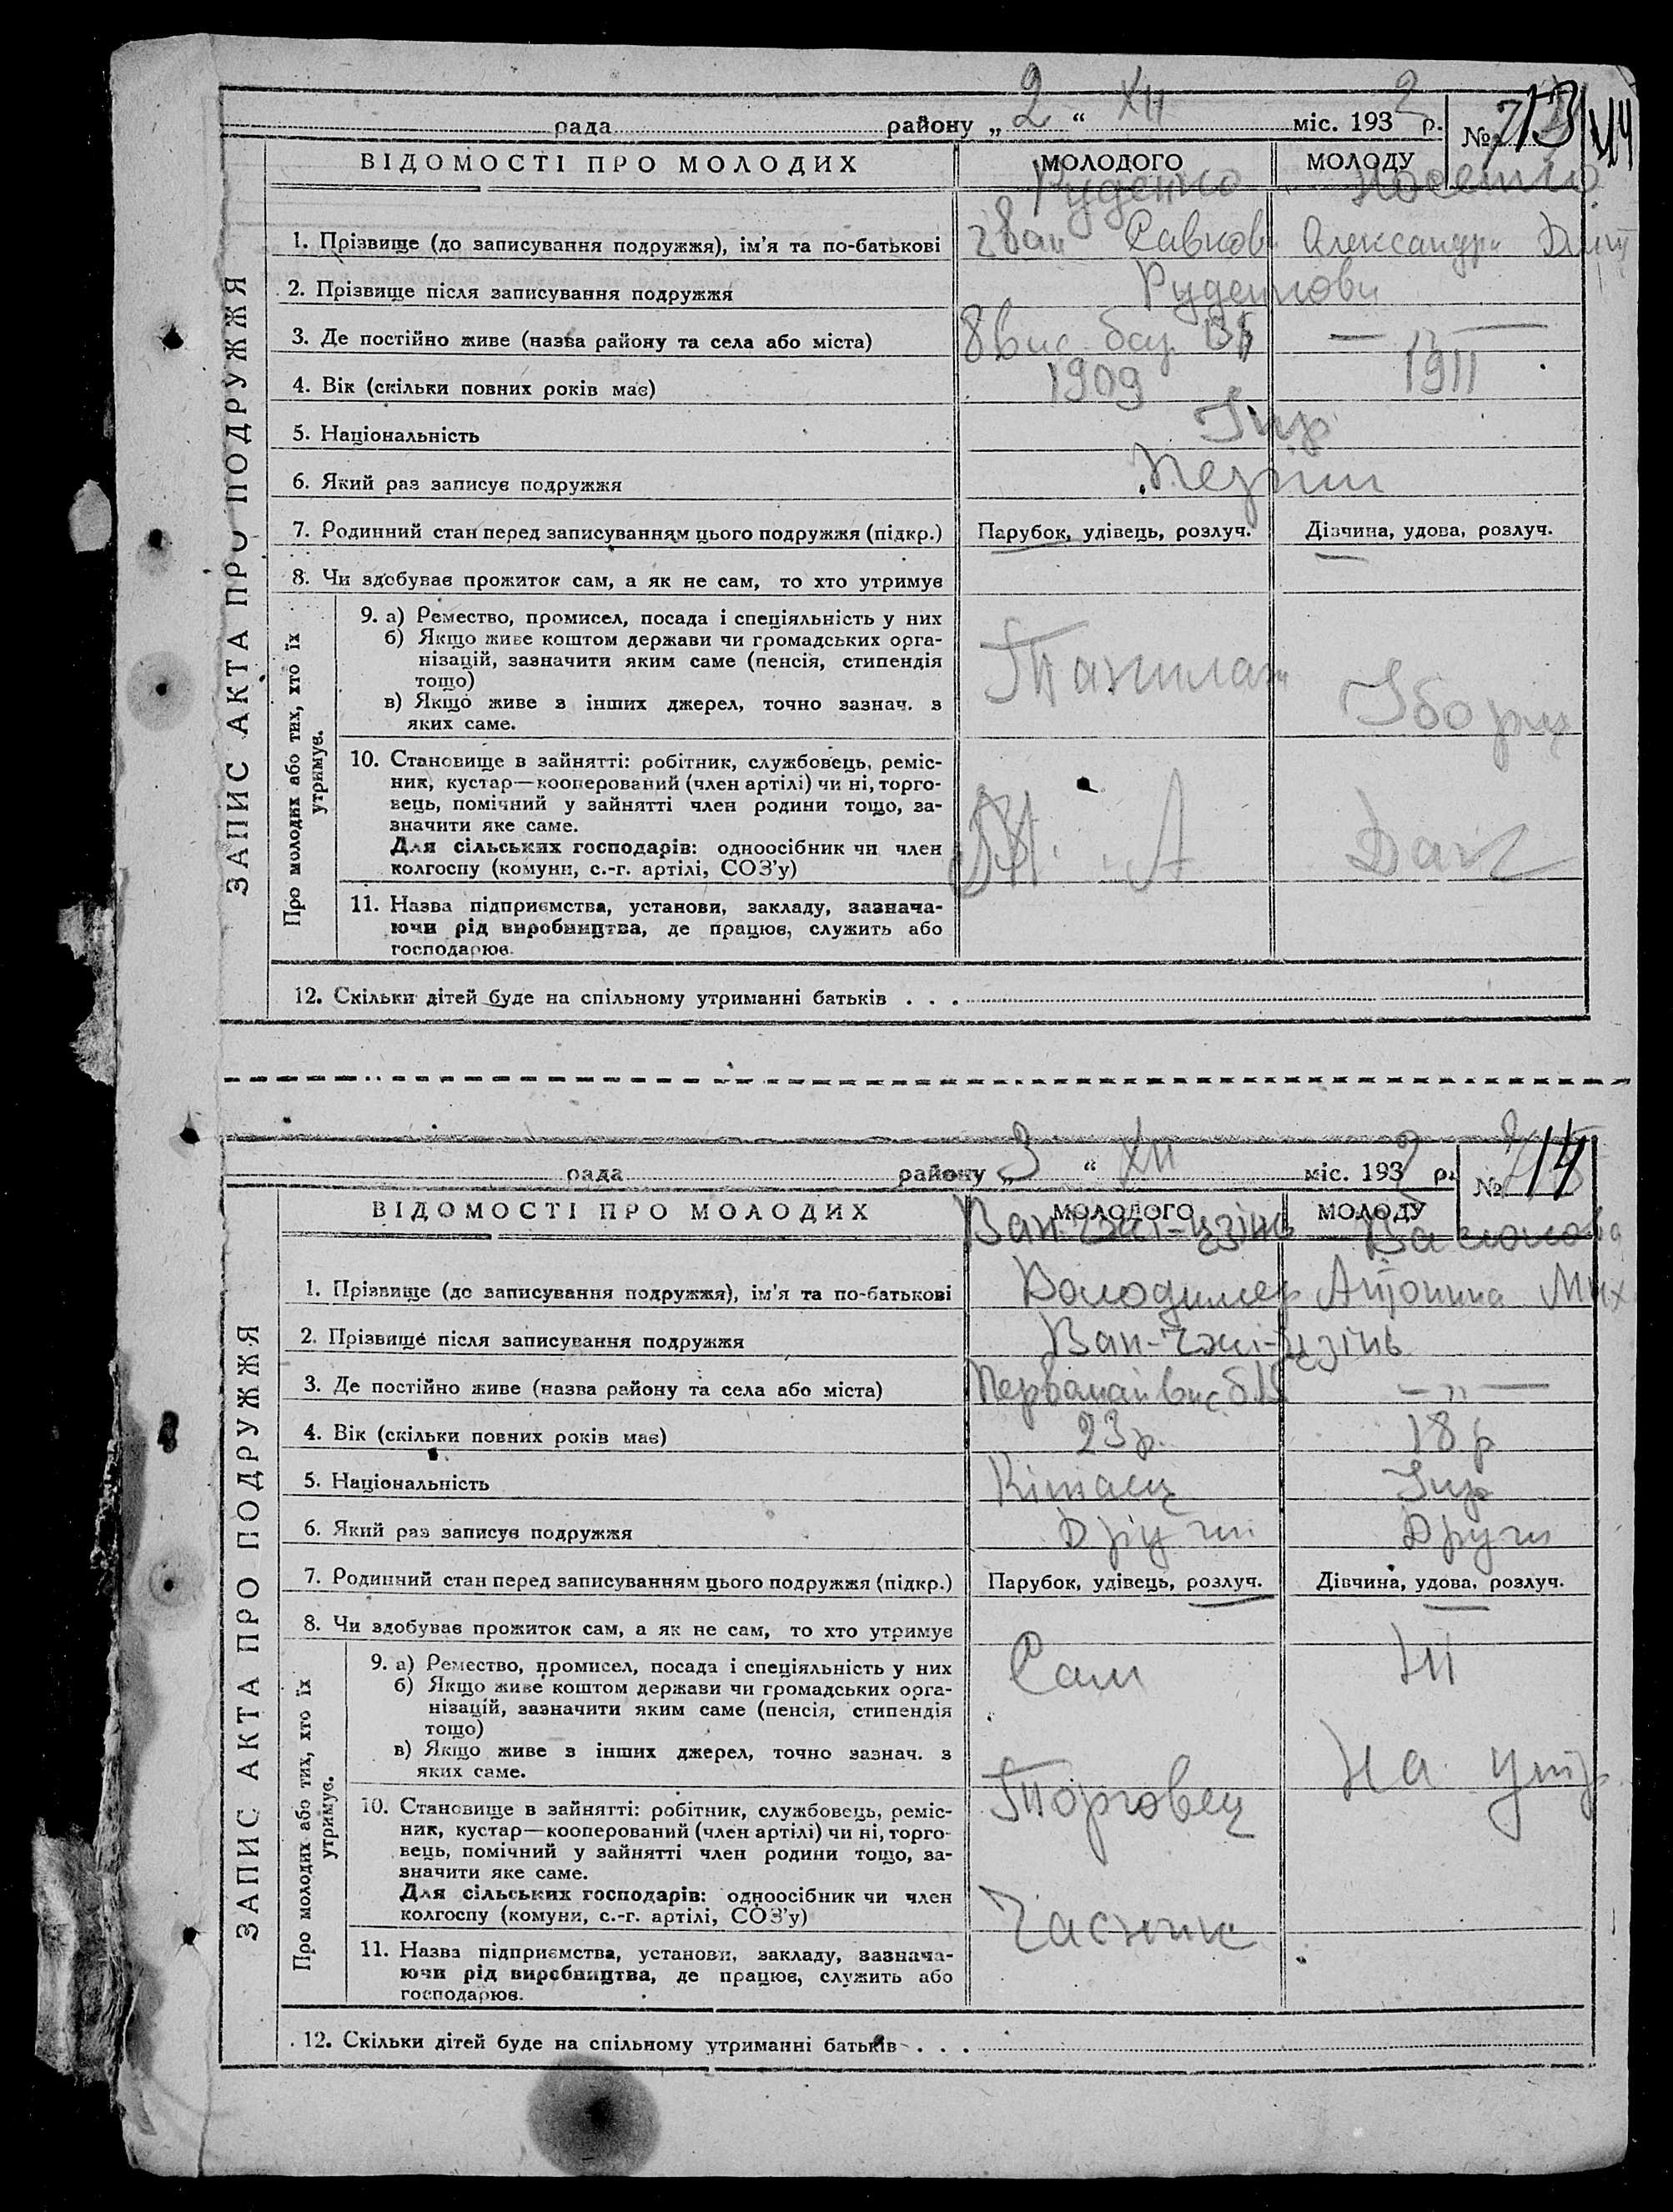 рада району „ 2 “ XII міс. 1932 р. № 713
ВІДОМОСТІ ПРО МОЛОДИХ МОЛОДОГО МОЛОДУ
Руденко
1. Прізвище (до записування подружжя), ім'я та по-батькові Іван Савков Александри
2. Прізвище після записування подружжя Руденкови
3. Де постійно живе (назва району та села або міста) 8 вис. бар. — " —
4. Вік (скільки повних років має) 1909 1911
5. Національність Укр
6. Який раз записує подружжя Перши
7. Родинний стан перед записуванням цього подружжя (підкр.) Парубок, удівець, розлуч. Дівчина, удова, розлуч.
8. Чи здобуває прожиток сам, а як не сам, то хто утримує
ЗАПИС АКТА ПРО ПОДРУЖЖЯ
Про молодих або тих, хто їх утримує.
9. а) Ремество, промисел, посада і спеціяльність у них
б) Якщо живе коштом держави чи громадських орга-
нізацій, зазначити яким саме (пенсія, стипендія
тощо)
в) Якщо живе з інших джерел, точно зазнач. з
яких саме.
10. Становище в зайнятті: робітник, службовець, реміс-
ник, кустар—кооперований (член артілі) чи ні, торго-
вець, помічний у зайнятті член родини тощо, за-
значити яке саме.
Для сільських господарів: одноосібник чи член
колгоспу (комуни, с.-г. артілі, СОЗ'у)
11. Назва підприємства, установи, закладу, зазнача-
ючи рід виробництва, де працює, служить або
господарює.
12. Скільки дітей буде на спільному утриманні батьків . . .
рада району „ 3 “ XII міс. 1932 р. № 714
ВІДОМОСТІ ПРО МОЛОДИХ МОЛОДОГО МОЛОДУ
Ван-Чжі-Цзінь
1. Прізвище (до записування подружжя), ім'я та по-батькові Володимер Антонина Мих
2. Прізвище після записування подружжя Ван-Чжі-Цзінь
3. Де постійно живе (назва району та села або міста) Первомай вис б. 15 — " —
4. Вік (скільки повних років має) 23 р. 18 р
5. Національність Китаец Укр
6. Який раз записує подружжя Други Други
7. Родинний стан перед записуванням цього подружжя (підкр.) Парубок, удівець, розлуч. Дівчина, удова, розлуч.
8. Чи здобуває прожиток сам, а як не сам, то хто утримує Сам Ні
ЗАПИС АКТА ПРО ПОДРУЖЖЯ
Про молодих або тих, хто їх утримує.
9. а) Ремество, промисел, посада і спеціяльність у них
б) Якщо живе коштом держави чи громадських орга-
нізацій, зазначити яким саме (пенсія, стипендія
тощо)
в) Якщо живе з інших джерел, точно зазнач. з
яких саме.
Торговец На утр
10. Становище в зайнятті: робітник, службовець, реміс-
ник, кустар—кооперований (член артілі) чи ні, торго-
вець, помічний у зайнятті член родини тощо, за-
значити яке саме.
Для сільських господарів: одноосібник чи член
колгоспу (комуни, с.-г. артілі, СОЗ'у)
Часник
11. Назва підприємства, установи, закладу, зазнача-
ючи рід виробництва, де працює, служить або
господарює.
12. Скільки дітей буде на спільному утриманні батьків . . .